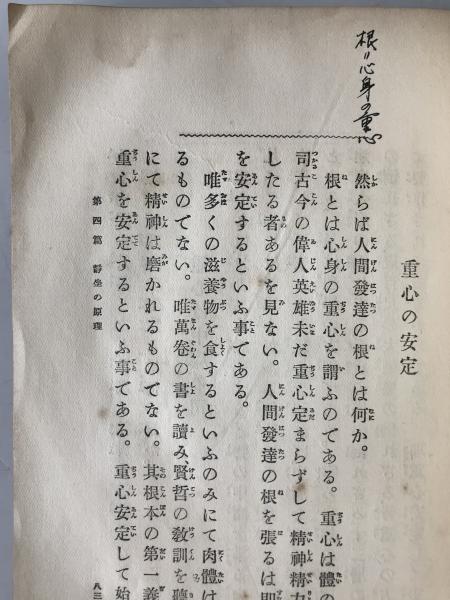 根=心身の重心
重心の安定
然らば人間發達の根とは何か。
根とは心身の重心を謂ふのである。重心は體の
司古今の偉人英雄未だ重心定まらずして精神精力
したる者あるを見ない。人間發達の根を張るは即
を安定するといふ事である。
唯多くの滋養物を食するといふのみにて肉體は
るものでない。唯萬卷の書を讀み、賢哲の敎訓を聽
にて精神は磨かれるものでない。其根本の第一義
重心を安定するといふ事である。重心安定して始
第四篇 靜坐の原理
八三